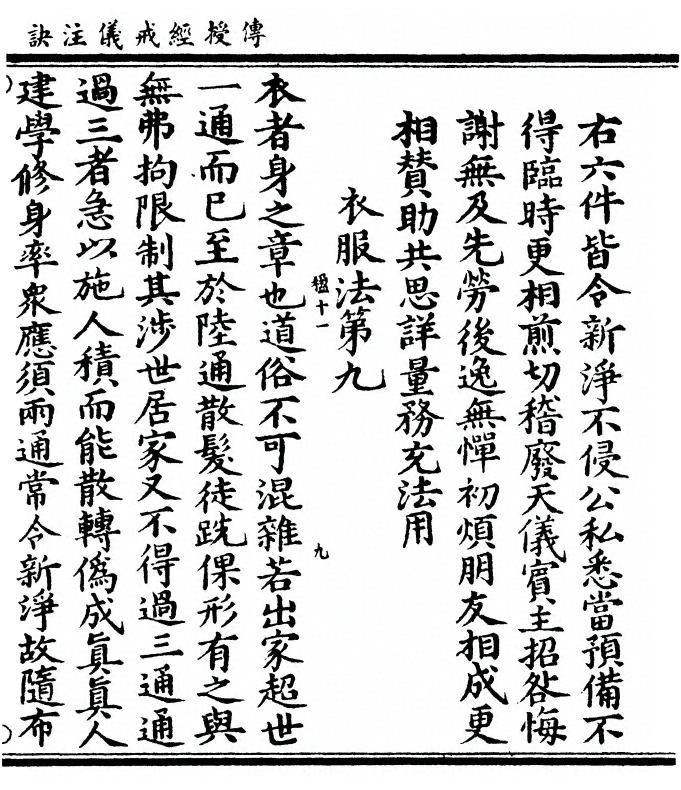 傳授經戒儀注訣
右六件皆令新淨不侵公私悉當預備不
得臨時更相煎切稽廢天儀賓主招咎悔
謝無及先勞後逸無憚初煩朋友相成更
相賛助共思詳量務充法用
衣服法第九
楹十一
九
衣者身之章也道俗不可混雜若出家超世
一通而已至於陸通散髮徒跣倮形有之與
無弗拘限制其涉世居家又不得過三通通
過三者急以施人積而能散轉僞成眞眞人
建學修身率衆應須兩通常令新淨故隨布